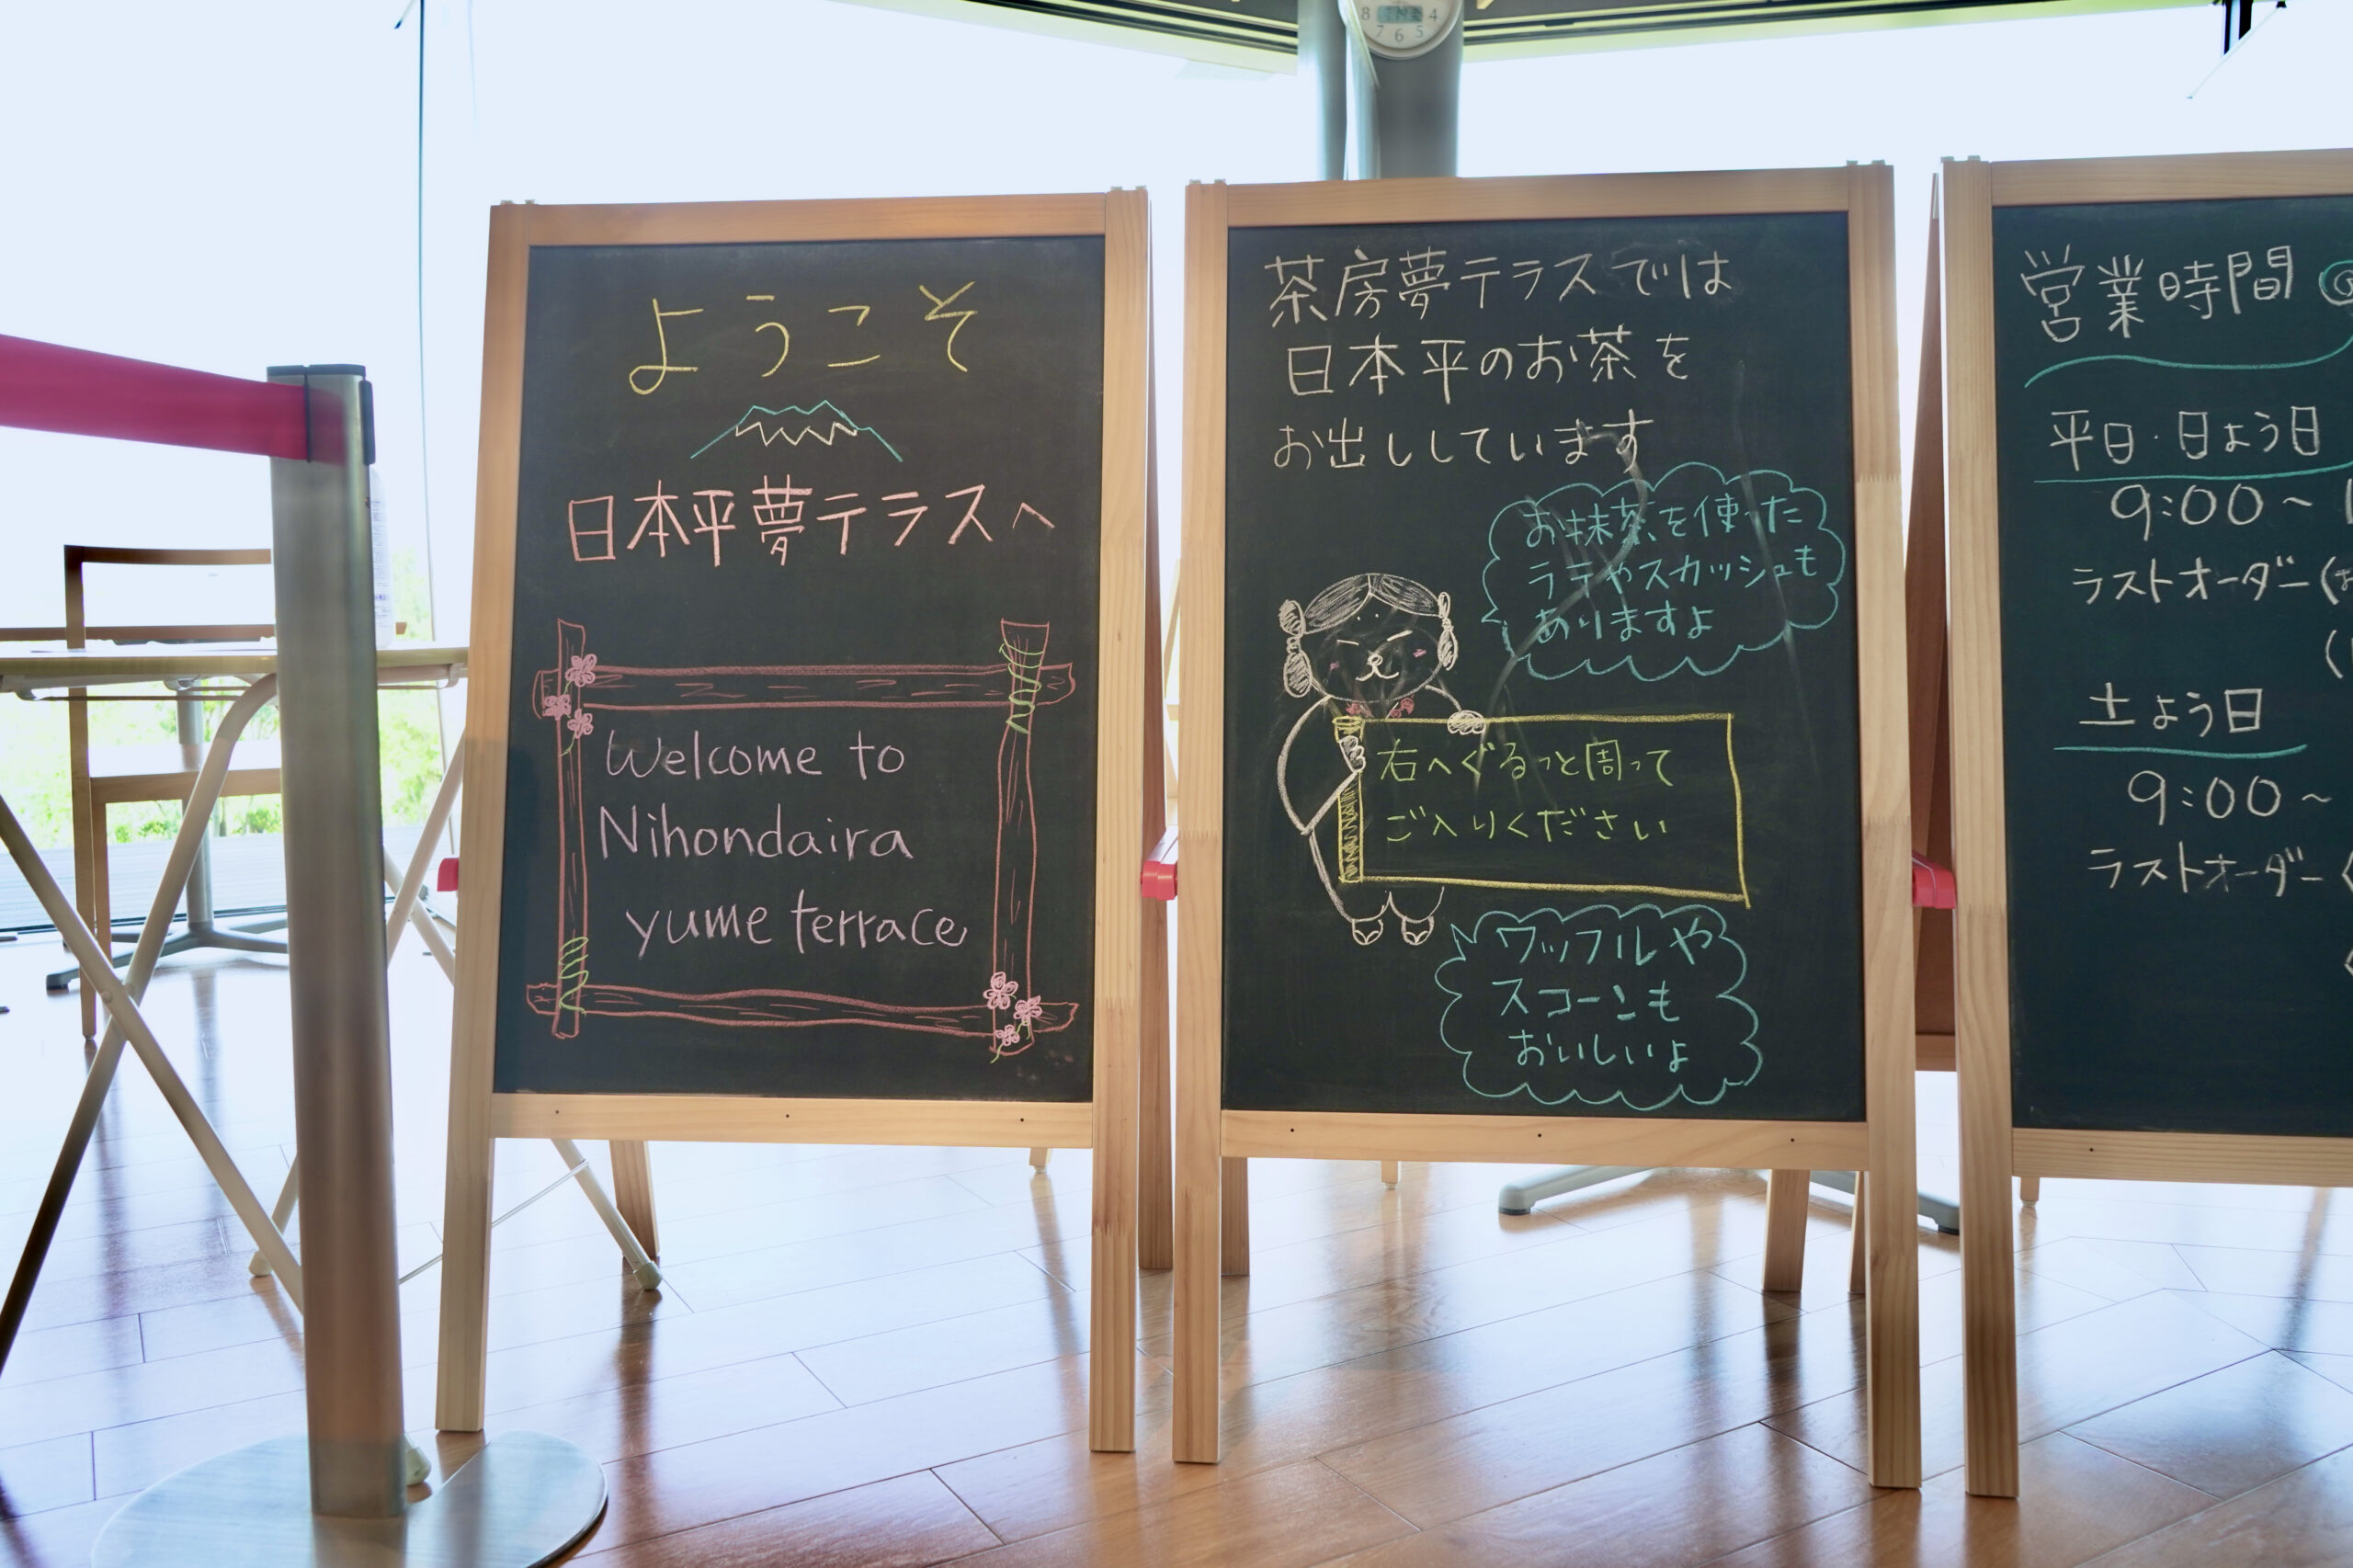 ようこそ
日本平夢テラスへ
Welcome to
Nihondaira
yume terrace
茶房夢テラスでは
日本平のお茶を
お出ししています
お抹茶を使った
ラテやスカッシュも
ありますよ
右へぐるっと周って
ご入りください
ワッフルや
スコーンも
おいしいよ
営業時間
平日・日よう日
9:00~
ラストオーダー(
土よう日
9:00~
ラストオーダー
8 7 6 5 4